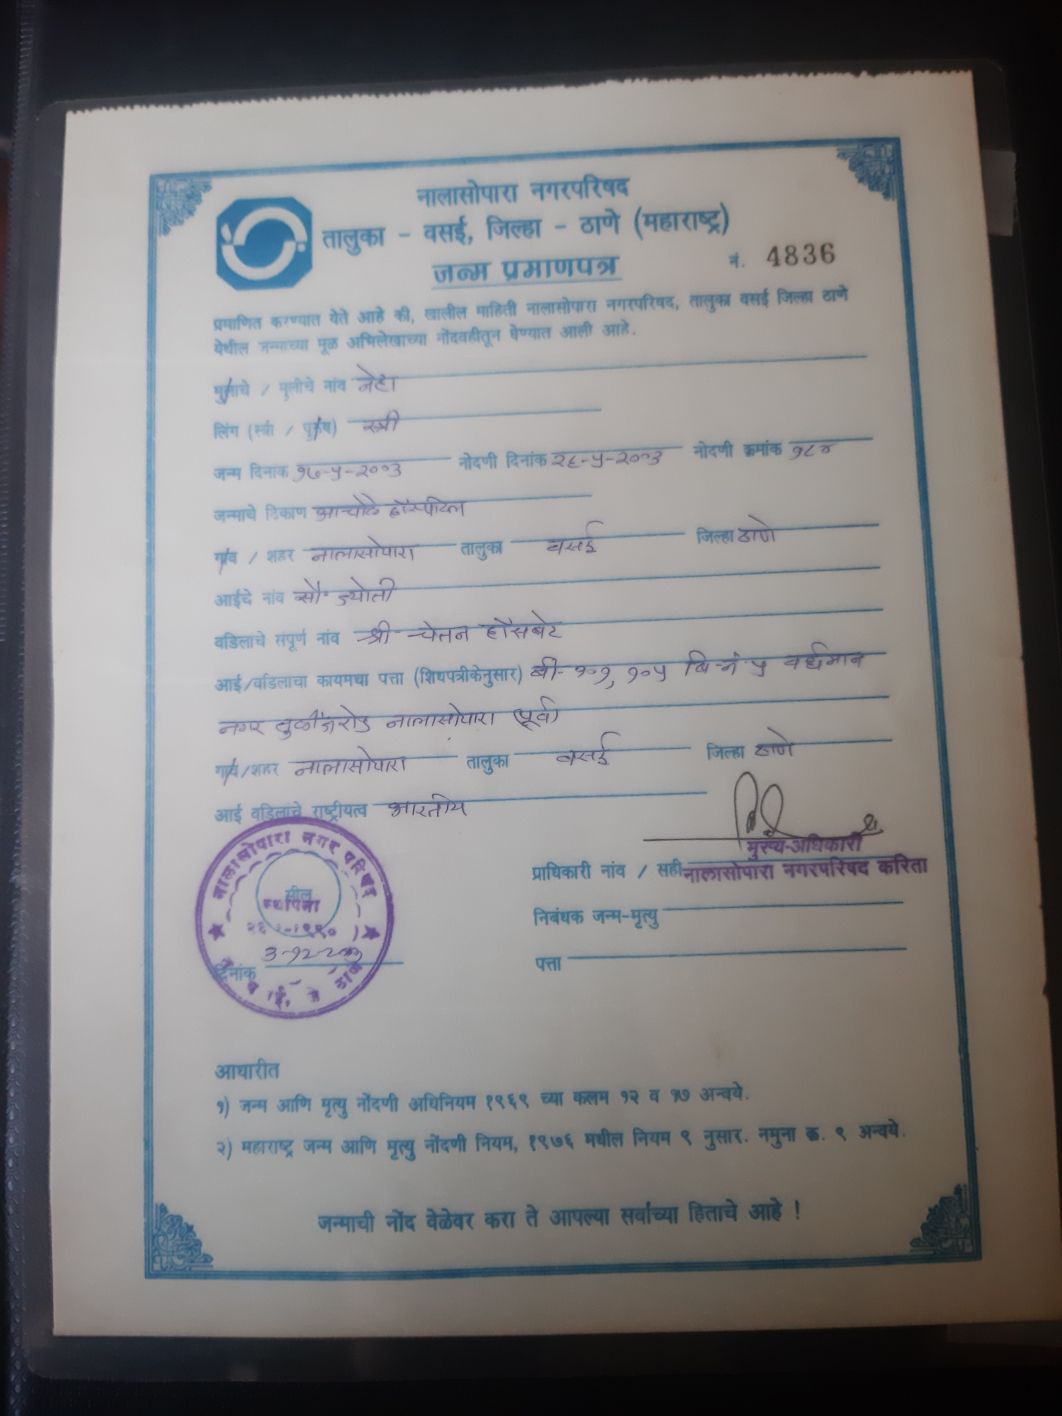 नालासोपारा नगरपरिषद
तालुका - वसई, जिल्हा - ठाणे (महाराष्ट्र)
जन्म प्रमाणपत्र
नं. 4836
प्रमाणित करण्यात येते आहे की, खालील माहिती नालासोपारा नगरपरिषद, तालुका वसई जिल्हा ठाणे
येथील जन्माच्या मूळ अभिलेखाच्या नोंदवहीतून घेण्यात आली आहे.
मुलाचे / मुलीचे नांव नेहा
लिंग (स्त्री / पुरुष) स्त्री
जन्म दिनांक १७-५-२००३ नोदणी दिनांक २६-५-२००३ नोदणी क्रमांक
जन्माचे ठिकाण आचोळे हॉस्पीटल
गांव / शहर नालासोपारा तालुका वसई जिल्हा ठाणे
आईचे नांव सौ. ज्योती
वडिलाचे संपूर्ण नांव श्री चेतन हॉसबेट
आई/वडिलाचा कायमचा पत्ता (शिधपत्रीकेनुसार) बी-१०१, १०५ बि.नं ५ वर्धमान
नगर तुळींजरोड नालासोपारा (पूर्व)
गांव/शहर नालासोपारा तालुका वसई जिल्हा ठाणे
आई वडिलांचे राष्ट्रीयत्व भारतीय
नालासोपारा नगर परिषद
सील
स्थापना
दिनांक ३-१२-२००३
मुख्य-अधिकारी
प्राधिकारी नांव / सही नालासोपारा नगरपरिषद करिता
निबंधक जन्म-मृत्यु
पत्ता
आधारीत
१) जन्म आणि मृत्यु नोंदणी अधिनियम १९६९ च्या कलम १२ व १७ अन्वये.
२) महाराष्ट्र जन्म आणि मृत्यु नोंदणी नियम, १९७६ मधील नियम ९ नुसार. नमुना क्र. ९ अन्वये.
जन्माची नोंद वेळेवर करा ते आपल्या सर्वांच्या हिताचे आहे !